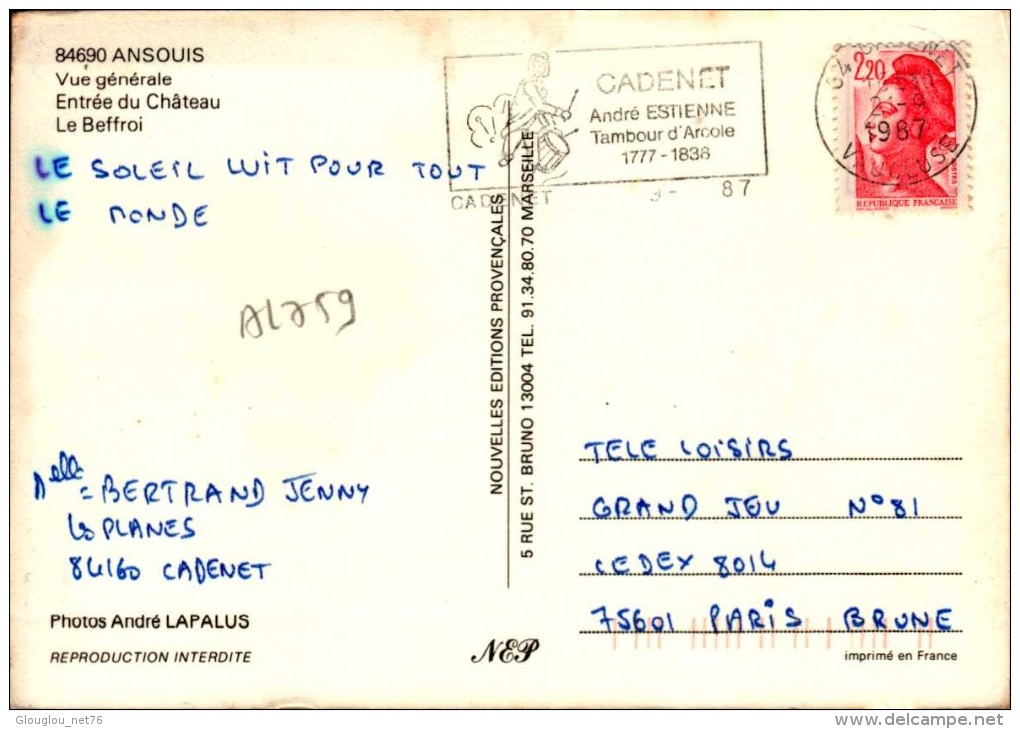 84690 ANSOUIS
Vue générale
Entrée du Château
Le Beffroi
LE SOLEIL LUIT POUR TOUT
LE MONDE
AL759
Melle = BERTRAND JENNY
Les PLANES
84160 CADENET
Photos André LAPALUS
REPRODUCTION INTERDITE
NOUVELLES EDITIONS PROVENÇALES
5 RUE ST. BRUNO 13004 TEL. 91.34.80.70 MARSEILLE
NEP
CADENET
André ESTIENNE
Tambour d'Arcole
1777-1838
CADENET
9- 87
2,20
1987
VAUCLUSE
RÉPUBLIQUE FRANÇAISE
TELE LOISIRS
GRAND JEU N°81
CEDEX 8014
75601 PARIS BRUNE
imprimé en France
Glouglou_net76
delcampe.net